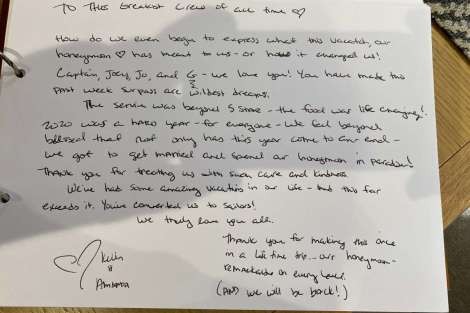 To This Greatest Crew of all time ♡
How do we even begin to express what this vacation, our
honeymoon ♡ has meant to us - or how it changed us!
Captain, Joey, Jo, and G - we love you! You have made this
past week surpass our wildest dreams.
The service was beyond 5 star - the food was life changing!
2020 was a hard year - for everyone - we feel beyond
blessed that not only has this year come to an end -
we got to get married and spend our honeymoon in paradise!
Thank you for treating us with such care and kindness
We've had some amazing vacations in our life - but this far
exceeds it. You've converted us to sailors!
We truly love you all.
Thank you for making this once
in a life time trip... our honeymoon -
remarkable on every level.
(AND we will be back!)
Kelly
&
Amanda